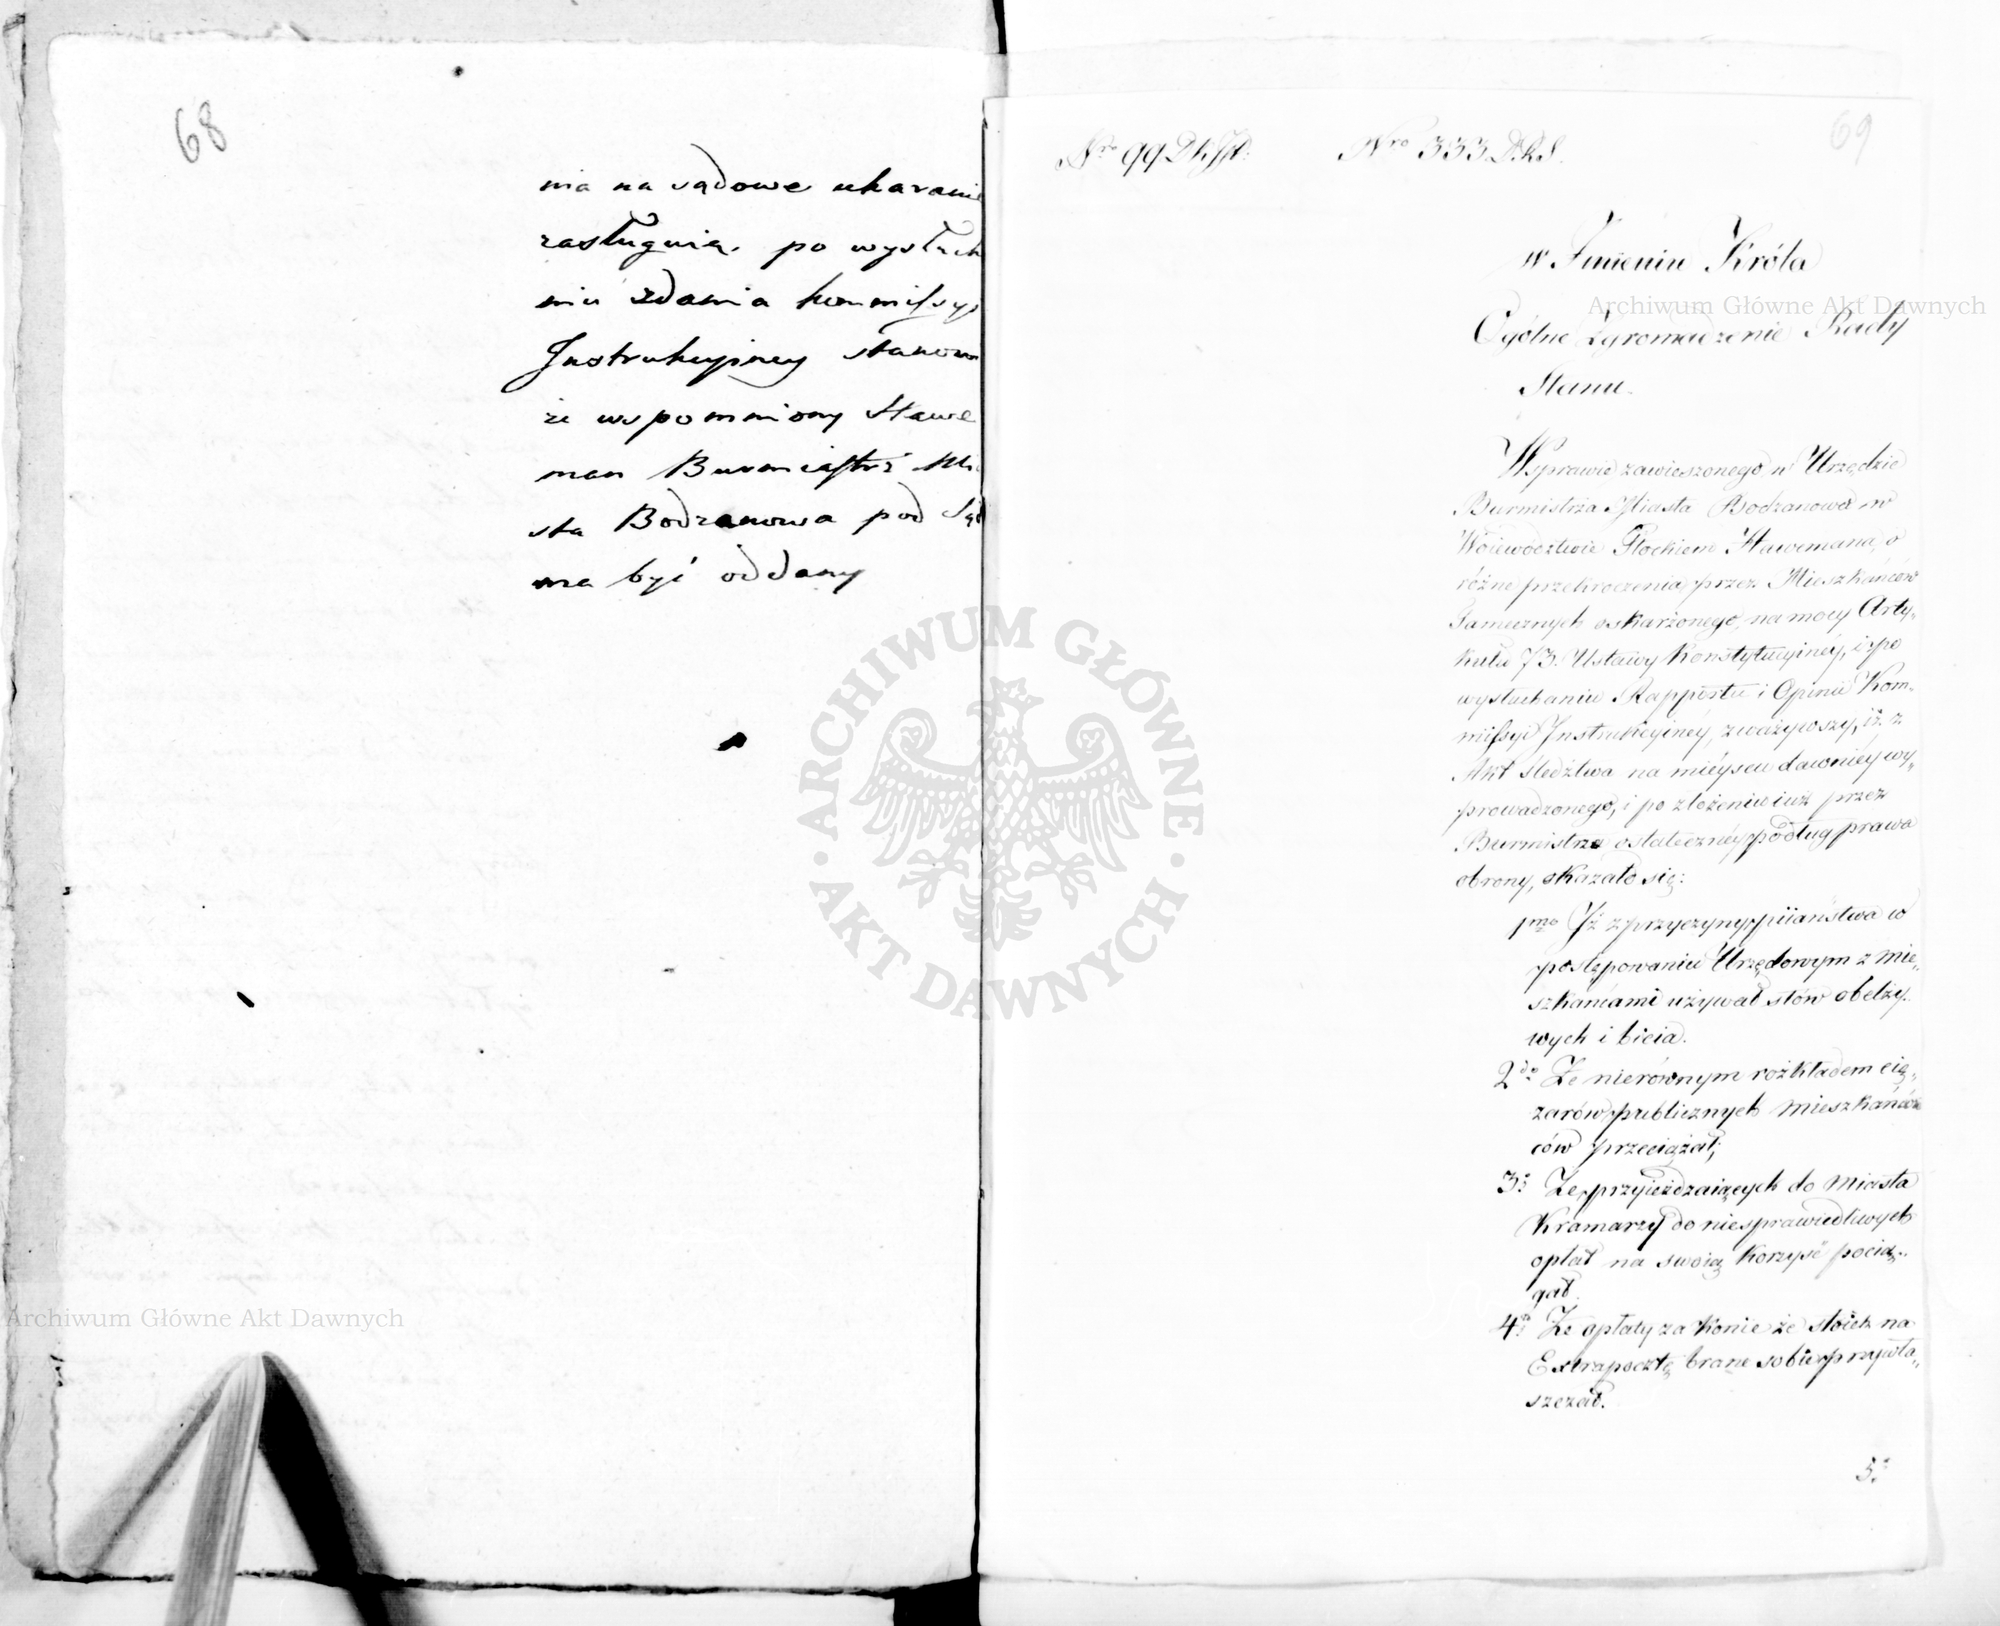 68
nia na sądowe ukaranie
zasługuią. po wysłuch
niu zdania kommissyi
Instrukcyiney stanowi
że wspomniony Hawe
man Burmistrz Mia
sta Bodzanowa pod Sąd
ma być oddany
69
Nro 99 Nro 333 D.R.S.
w Imieniu Króla
Ogólne Zgromadzenie Rady
Stanu.
W sprawie zawieszonego w Urzędzie
Burmistrza Miasta Bodzanowa w
Woiewództwie Płockiem Hawemana, o
różne przekroczenia przez Mieszkańców
Tamecznych oskarżonego, na mocy Arty-
kułu 73. Ustawy Konstytucyinéy, i po
wysłuchaniu Rapportu i Opinii Kom-
missyi Instrukcyinéy, zważywszy, iż z
Akt śledztwa na mieyscu dawniéy wy-
prowadzonego, i po złożeniu iuż przez
Burmistrza ostatecznéy podług prawa
obrony, okazało się:
1mo Iż z przyczyny piiaństwa w
postępowaniu Urzędowym z mie-
szkańcami używał słów obelży-
wych i bicia.
2do Że nierównym rozkładem cię-
żarów publicznych mieszkańców
ców przeciążał;
3o Że przyieżdzaiących do Miasta
Kramarzy do niesprawiedliwych
opłat na swoią korzyść pocią-
gał.
4o Że opłaty za konie że stóiek na
Extrapocztę brane sobie przywła-
szczał.
5o
Archiwum Główne Akt Dawnych
Archiwum Główne Akt Dawnych
ARCHIWUM GŁÓWNE
AKT DAWNYCH